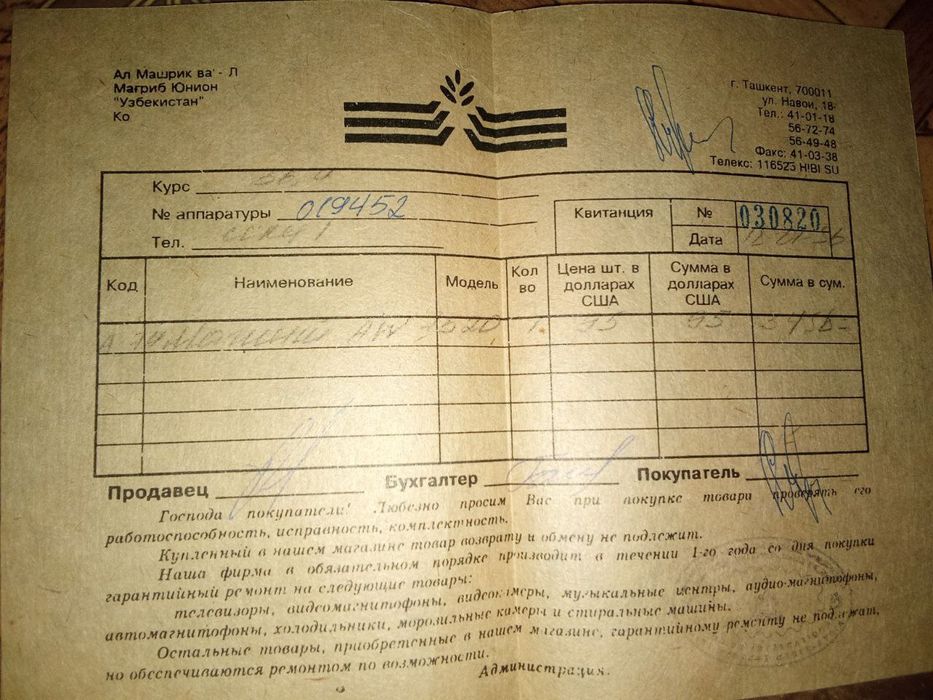 Ал Машрик ва' - Л
Магриб Юнион
"Узбекистан"
Ко
г. Ташкент, 700011
ул. Навои, 18-
Тел.: 41-01-18
56-72-74
56-49-48
Факс: 41-03-38
Телекс: 116523 HIBI SU
Курс
№ аппаратуры 019452
Тел.
Квитанция № 030820
Дата
Код Наименование Модель Кол во Цена шт. в долларах США Сумма в долларах США Сумма в сум.
1 95 95
Продавец Бухгалтер Покупатель
Господа покупатели! Любезно просим Вас при покупке товара проверять его
работоспособность, исправность, комплектность.
Купленный в нашем магазине товар возврату и обмену не подлежит.
Наша фирма в обязательном порядке производит в течении 1-го года со дня покупки
гарантийный ремонт на следующие товары:
телевизоры, видеомагнитофоны, видеокамеры, музыкальные центры, аудио-магнитофоны,
автомагнитофоны, холодильники, морозильные камеры и стиральные машины.
Остальные товары, приобретенные в нашем магазине, гарантийному ремонту не подлежат,
но обеспечиваются ремонтом по возможности.
Администрация.